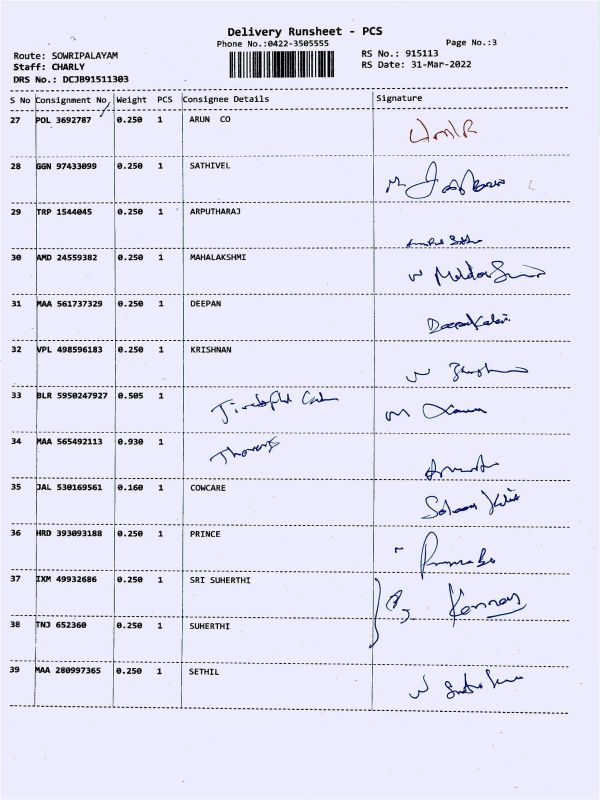 Delivery Runsheet - PCS
Phone No.:0422-3505555
Page No.:3
Route: SOWRIPALAYAM
RS No.: 915113
Staff: CHARLY
RS Date: 31-Mar-2022
DRS No.: DCJB91511303
S No Consignment No, Weight PCS Consignee Details Signature
27 POL 3692787 0.250 1 ARUN CO
28 GGN 97433099 0.250 1 SATHIVEL
29 TRP 1544045 0.250 1 ARPUTHARAJ
30 AMD 24559382 0.250 1 MAHALAKSHMI
31 MAA 561737329 0.250 1 DEEPAN
32 VPL 498596183 0.250 1 KRISHNAN
33 BLR 5950247927 0.505 1
34 MAA 565492113 0.930 1
35 JAL 530169561 0.160 1 COWCARE
36 HRD 393093188 0.250 1 PRINCE
37 IXM 49932686 0.250 1 SRI SUHERTHI
38 TNJ 652360 0.250 1 SUHERTHI
39 MAA 280997365 0.250 1 SETHIL